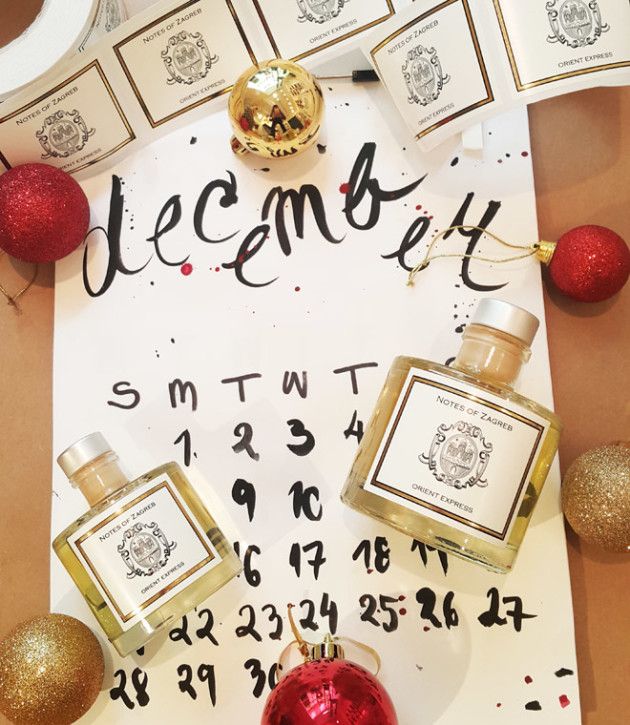 NOTES OF ZAGREB
ORIENT EXPRESS
NOTES OF ZAGREB
ORIENT EXPRESS
ORIENT EXPRESS
NOTES OF ZAGREB
ORIENT EXPRESS
ORIENT EXPRESS
december
S M T W T
1. 2 3 4
9 10
16 17 18
22 23 24 25 26 27
28 29 30
NOTES OF ZAGREB
ORIENT EXPRESS
NOTES OF ZAGREB
ORIENT EXPRESS